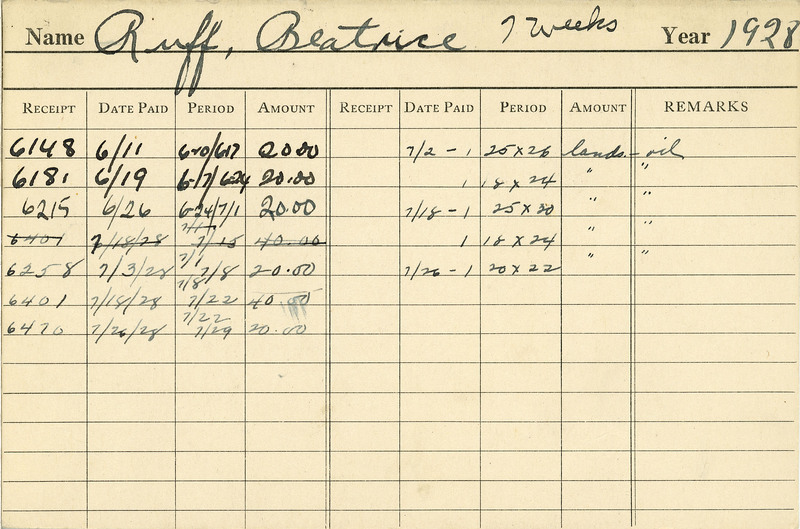 Name Ruff, Beatrice 7 weeks Year 1928
RECEIPT DATE PAID PERIOD AMOUNT RECEIPT DATE PAID PERIOD AMOUNT REMARKS
6148 6/11 6-10/617 20.00 7/2 - 1 25 x 26 lands. - oil
6181 6/19 6-17/6-24 20.00 1 18 x 24 " "
6215 6/26 6-24/7/1 20.00 7/18 - 1 25 x 30 " "
6401 7/18/28 7/15 40.00 1 18 x 24 " "
6258 7/3/28 7/1 7/8 20.00 7/26 - 1 20 x 22 " "
6401 7/18/28 7/8/ 7/22 40.00
6470 7/26/28 7/22 7/29 20.00